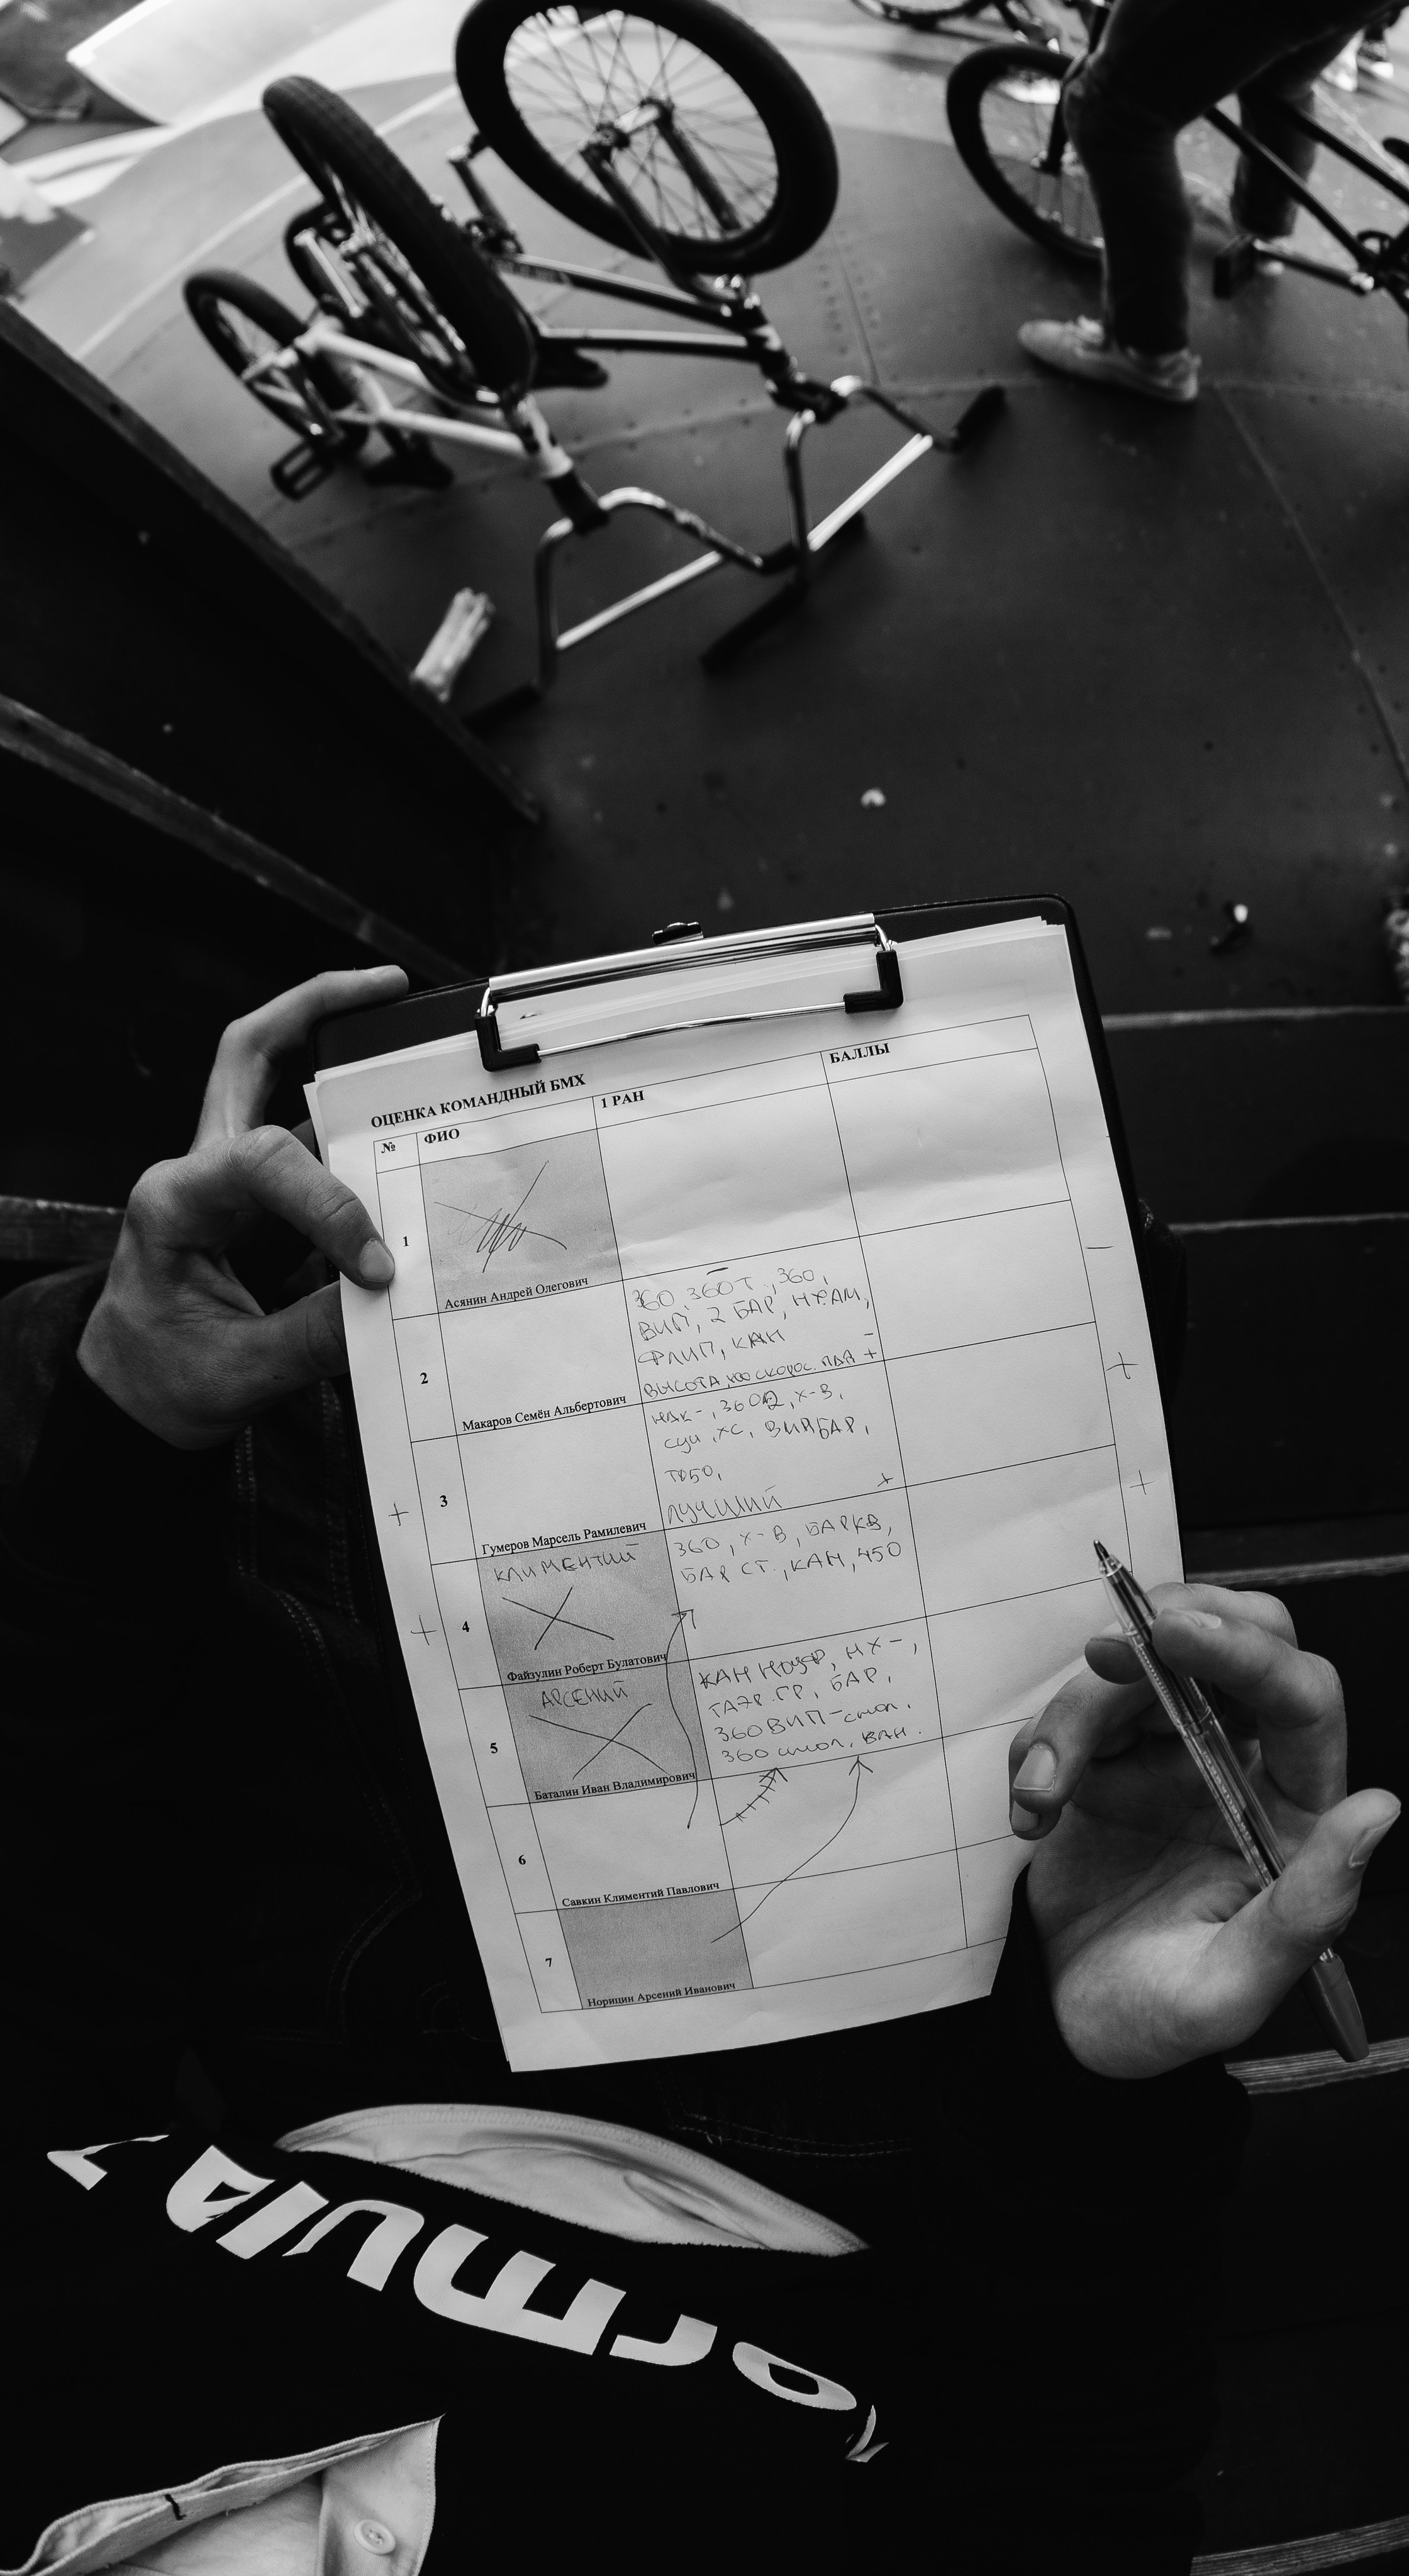 ОЦЕНКА КОМАНДНЫЙ БМХ
№ ФИО 1 РАН БАЛЛЫ
1 Асянин Андрей Олегович
360, 360Т, 360,
ВИП, 2 БАР,
ФЛИП, КАН
ВЫСОТА, +
2 Макаров Семён Альбертович
Х-В,
ХС, ВИПБАР,
ЛУЧШИЙ +
3 Гумеров Марсель Рамилевич
КЛИМЕНТИЙ
360, Х-В, БАРКВ,
БАР СТ., КАН, 450
4 Файзулин Роберт Булатович
АРСЕНИЙ
КАН НХ-,
БАР,
360 ВИП-
360
5 Баталин Иван Владимирович
6 Савкин Климентий Павлович
7 Норицин Арсений Иванович
+
+
-
+
+
FORMULA 7